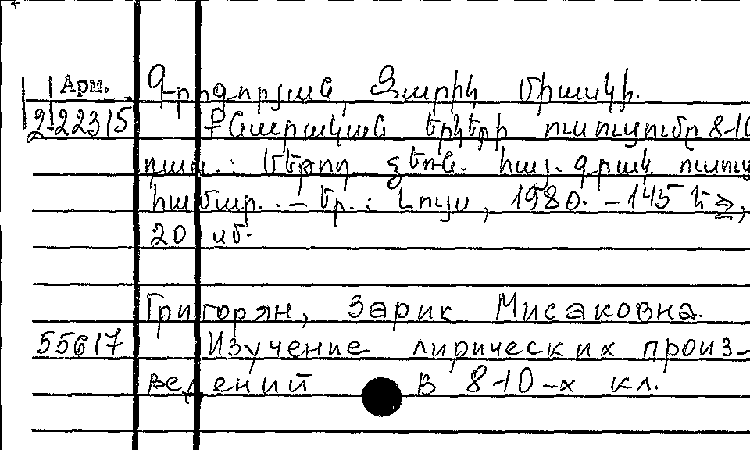 Арм.
Գրիգորյան, Զարիկ Միսակի.
2-22315
Քնարական երկերի ուսուցումը 8-10
դաս.: Մեթոդ. ձեռն. հայ. գրակ. ուսուց
համար. - Եր.: Լույս, 1980. - 145 էջ;
20 սմ.
Григорян, Зарик Мисаковна.
55617
Изучение лирических произ-
ведений в 8-10-х кл.